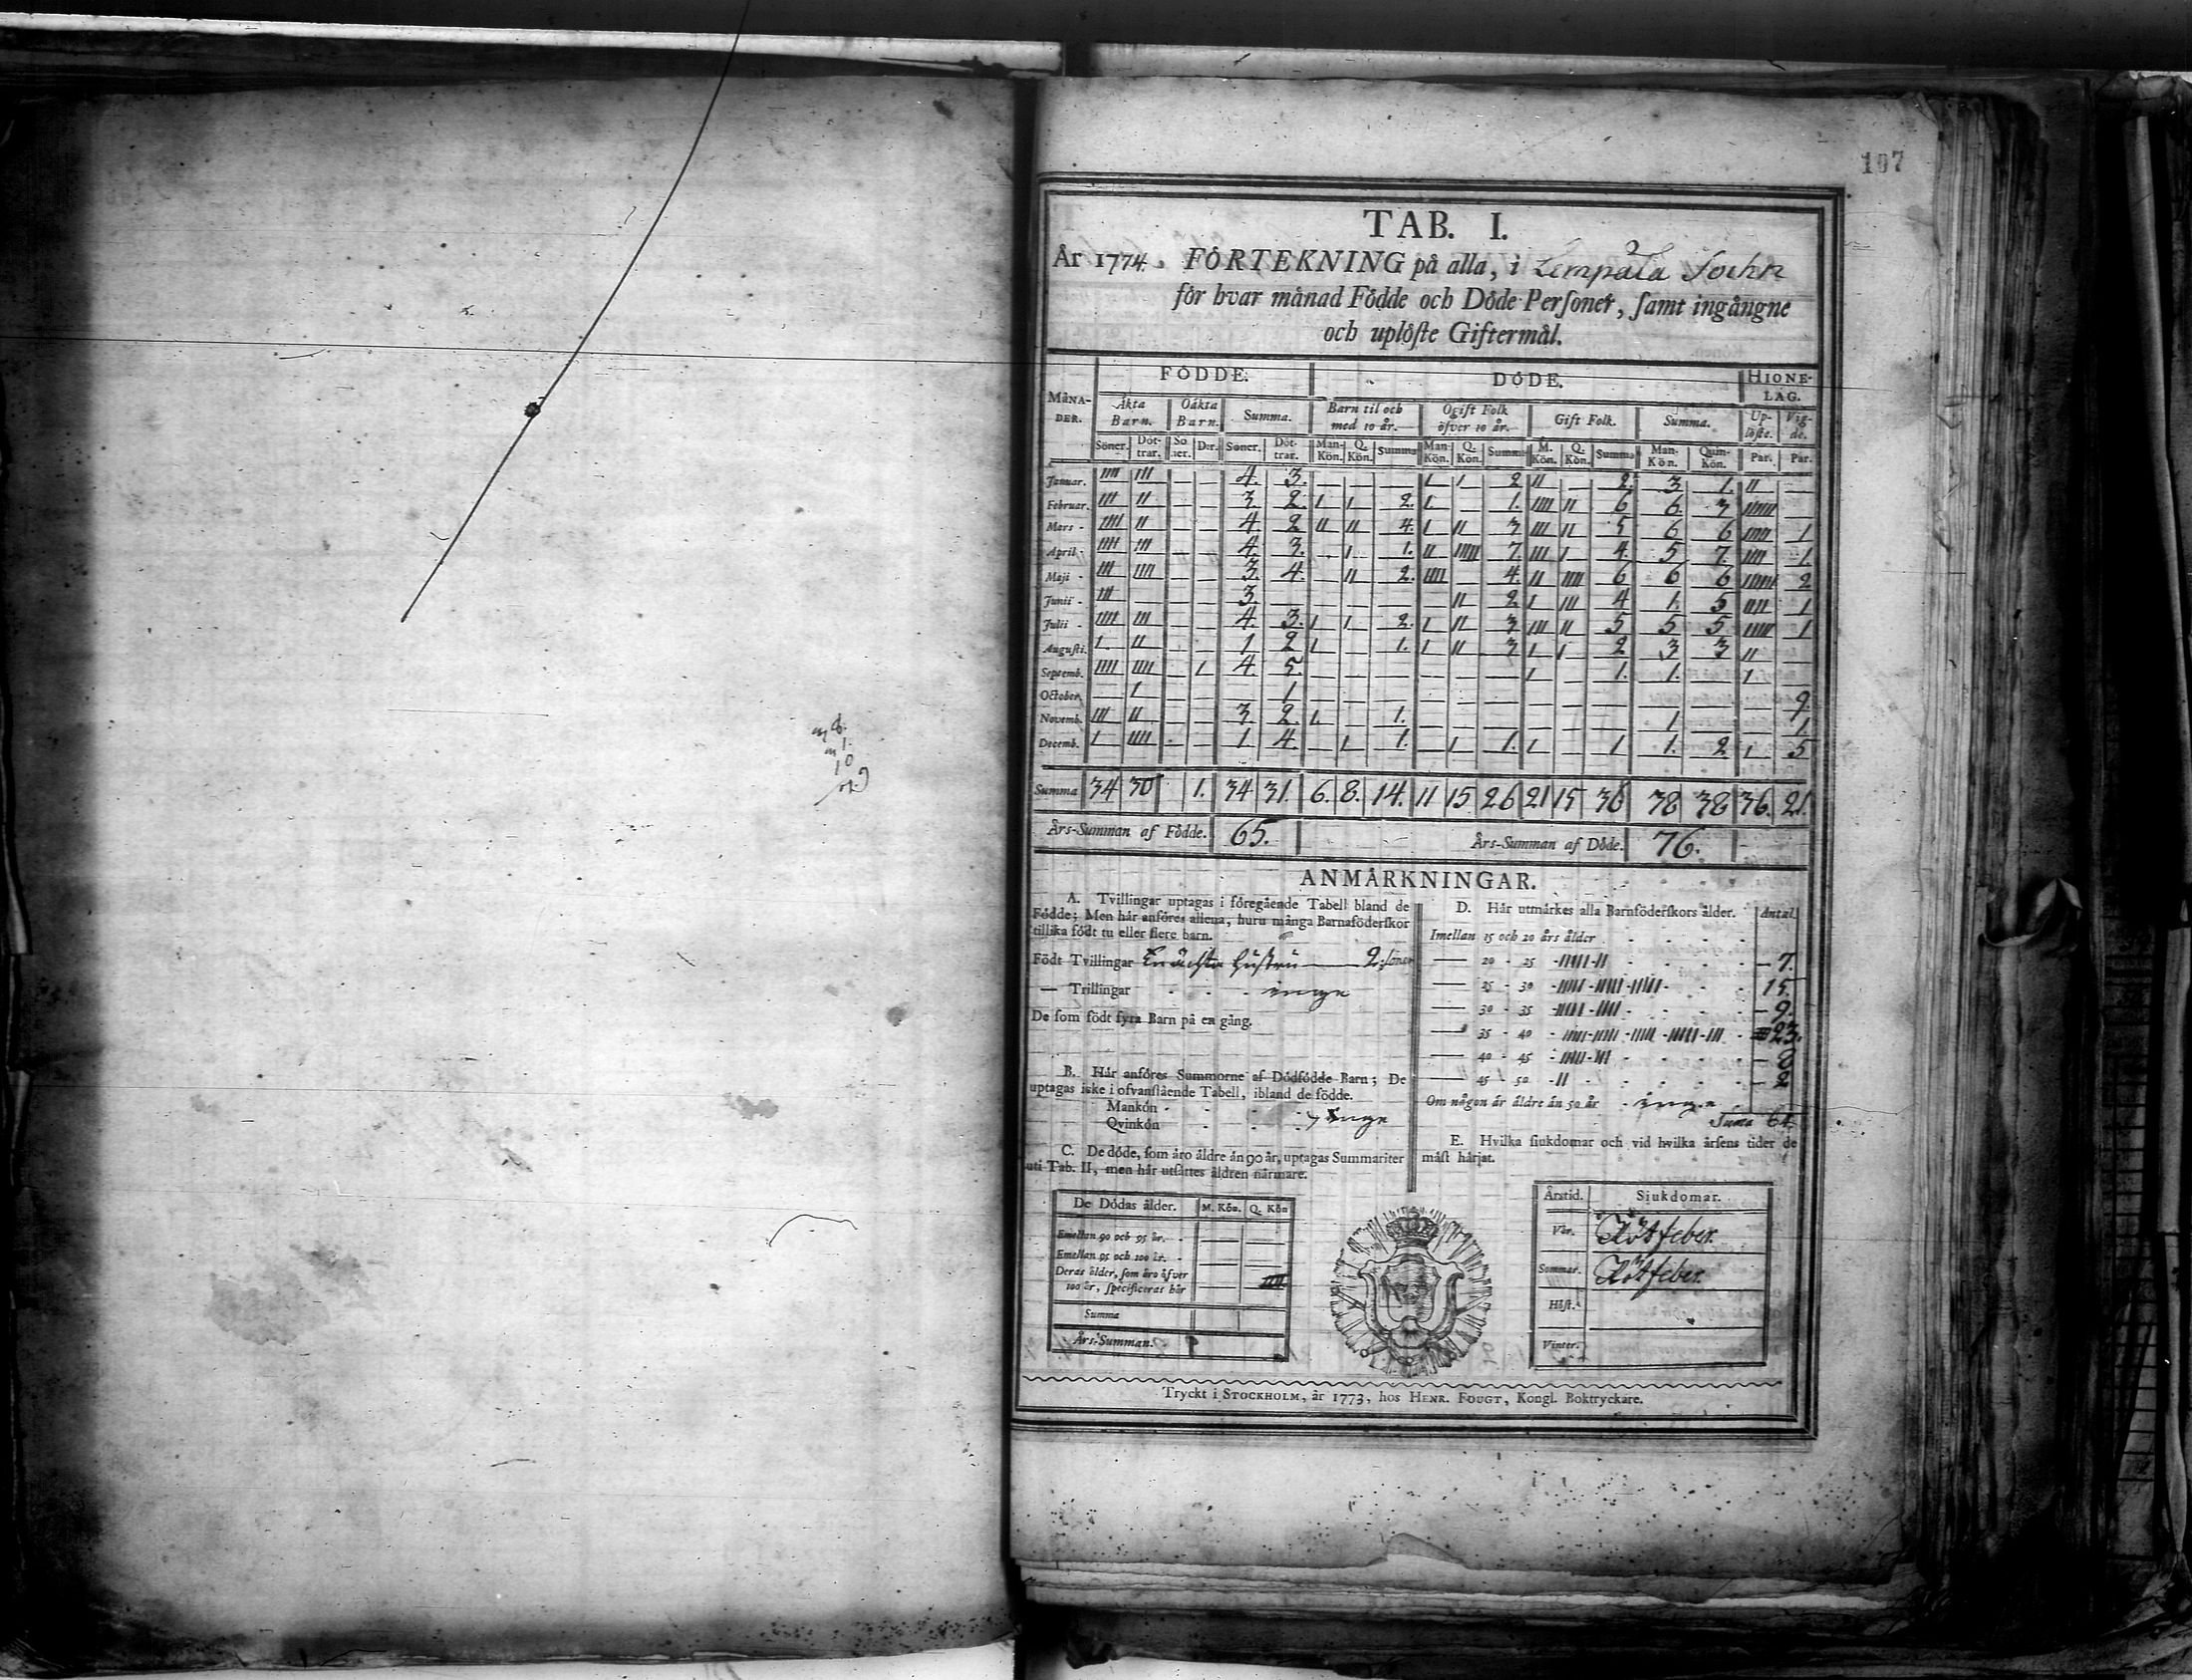 107
TAB. I.
År 1774. FÖRTEKNING på alla, i Lempåla Sochn
för hvar månad Födde och Döde Personer, samt ingångne
och uplöste Giftermål.
MÅNADER. FÖDDE. DÖDE. HIONELAG.
Äkta Barn. Oäkta Barn. Summa. Barn til och med 10 år. Ogift Folk öfver 10 år. Gift Folk. Summa. Uplöste. Vigde.
Söner. Döttrar. Soner. Der. Söner. Döttrar. Man-Kön. Q. Kön. Summa Man-Kön. Q. Kön. Summa M. Kön. Q. Kön. Summa Man-Kön. Quin-Kön. Par. Par.
Januar. IIII III — — 4. 3. — — — I I 2 II — 2. 3 1. II —
Februar. III II — — 3. 2. I I 2. I. — 1. IIII II 6 6. 3 IIIIII —
Mars - IIII II — — 4 2 II II 4. I II 3 III II 5 6 6 IIIII 1
April - IIII III — — 4 3. — I 1. II IIIII 7. III I 4. 5 7. IIII 1.
Maji - III IIII — — 3. 4. — II 2. IIII — 4. II IIII 6 6 6 IIIIII 2
Junii - III — — — 3. — — — — — II 2 I III 4 1. 5 IIII 1
Julii - IIII III — — 4. 3. I I 2. I II 3 III II 5 5 5 IIIII 1
Augusti. I. II — — 1 2 I. — 1. I II 3 I I 2 3 3 II —
Septemb. IIII IIII — I 4. 5. I — 1. 1. — I —
October — I — — — 1 — — — — — — — — — — — — 9.
Novemb. III II — — 3 2. I. — 1. — — — — — — 1 — — 1
Decemb. I IIII — — 1. 4. — I 1. — I 1. I — 1 1. 2 I. 5
Summa 34 30 1. 34 31. 6. 8. 14. 11 15 26 21 15 36 38 38 36. 21.
Års-Summan af Födde. 65. Års-Summan af Döde. 76.
ANMÄRKNINGAR.
A. Tvillingar uptagas i föregående Tabell bland de
Födde; Men här anföres allena, huru många Barnaföderskor
tillika födt tu eller flere barn.
Födt Tvillingar hustru 2. söner
— Trillingar - - - inge
De som födt fyra Barn på en gång.
B. Här anföres Summorne af Dödfödde Barn; De
uptagas icke i ofvanstående Tabell, ibland de födde.
Mankön - - - -
Qvinkön - - - inge
C. De döde, som äro äldre än 90 år, uptagas Summariter
uti Tab. II, men här utsättes åldren närmare.
De Dödas ålder. M. Kön. Q. Kön
Emellan 90 och 95 år. - — —
Emellan 95 och 100 år. - — —
Deras ålder, som äro öfver
100 år, specificeras här —
Summa
Års-Summan.
D. Här utmärkes alla Barnföderskors ålder. Antal
Imellan 15 och 20 års ålder - - - -
— 20 - 25 - IIIII - II - - - - 7.
— 25 - 30 - IIIII - IIIII - IIIII - - - 15
— 30 - 35 - IIIII - IIII - - - - 9.
— 35 - 40 - IIIII - IIIII - IIIII - IIIII - III - 23.
— 40 - 45 - IIIII - III - - - - 8
— 45 - 50 - II - - - - - 2
Om någon är äldre än 50 år - inge
Suma 64.
E. Hvilka sjukdomar och vid hvilka årsens tider de
mäst härjat.
Årstid. Sjukdomar.
Vår. Rötfeber.
Sommar. Rötfeber.
Höst.
Vinter.
Tryckt i STOCKHOLM, år 1773, hos HENR. FOUGT, Kongl. Boktryckare.